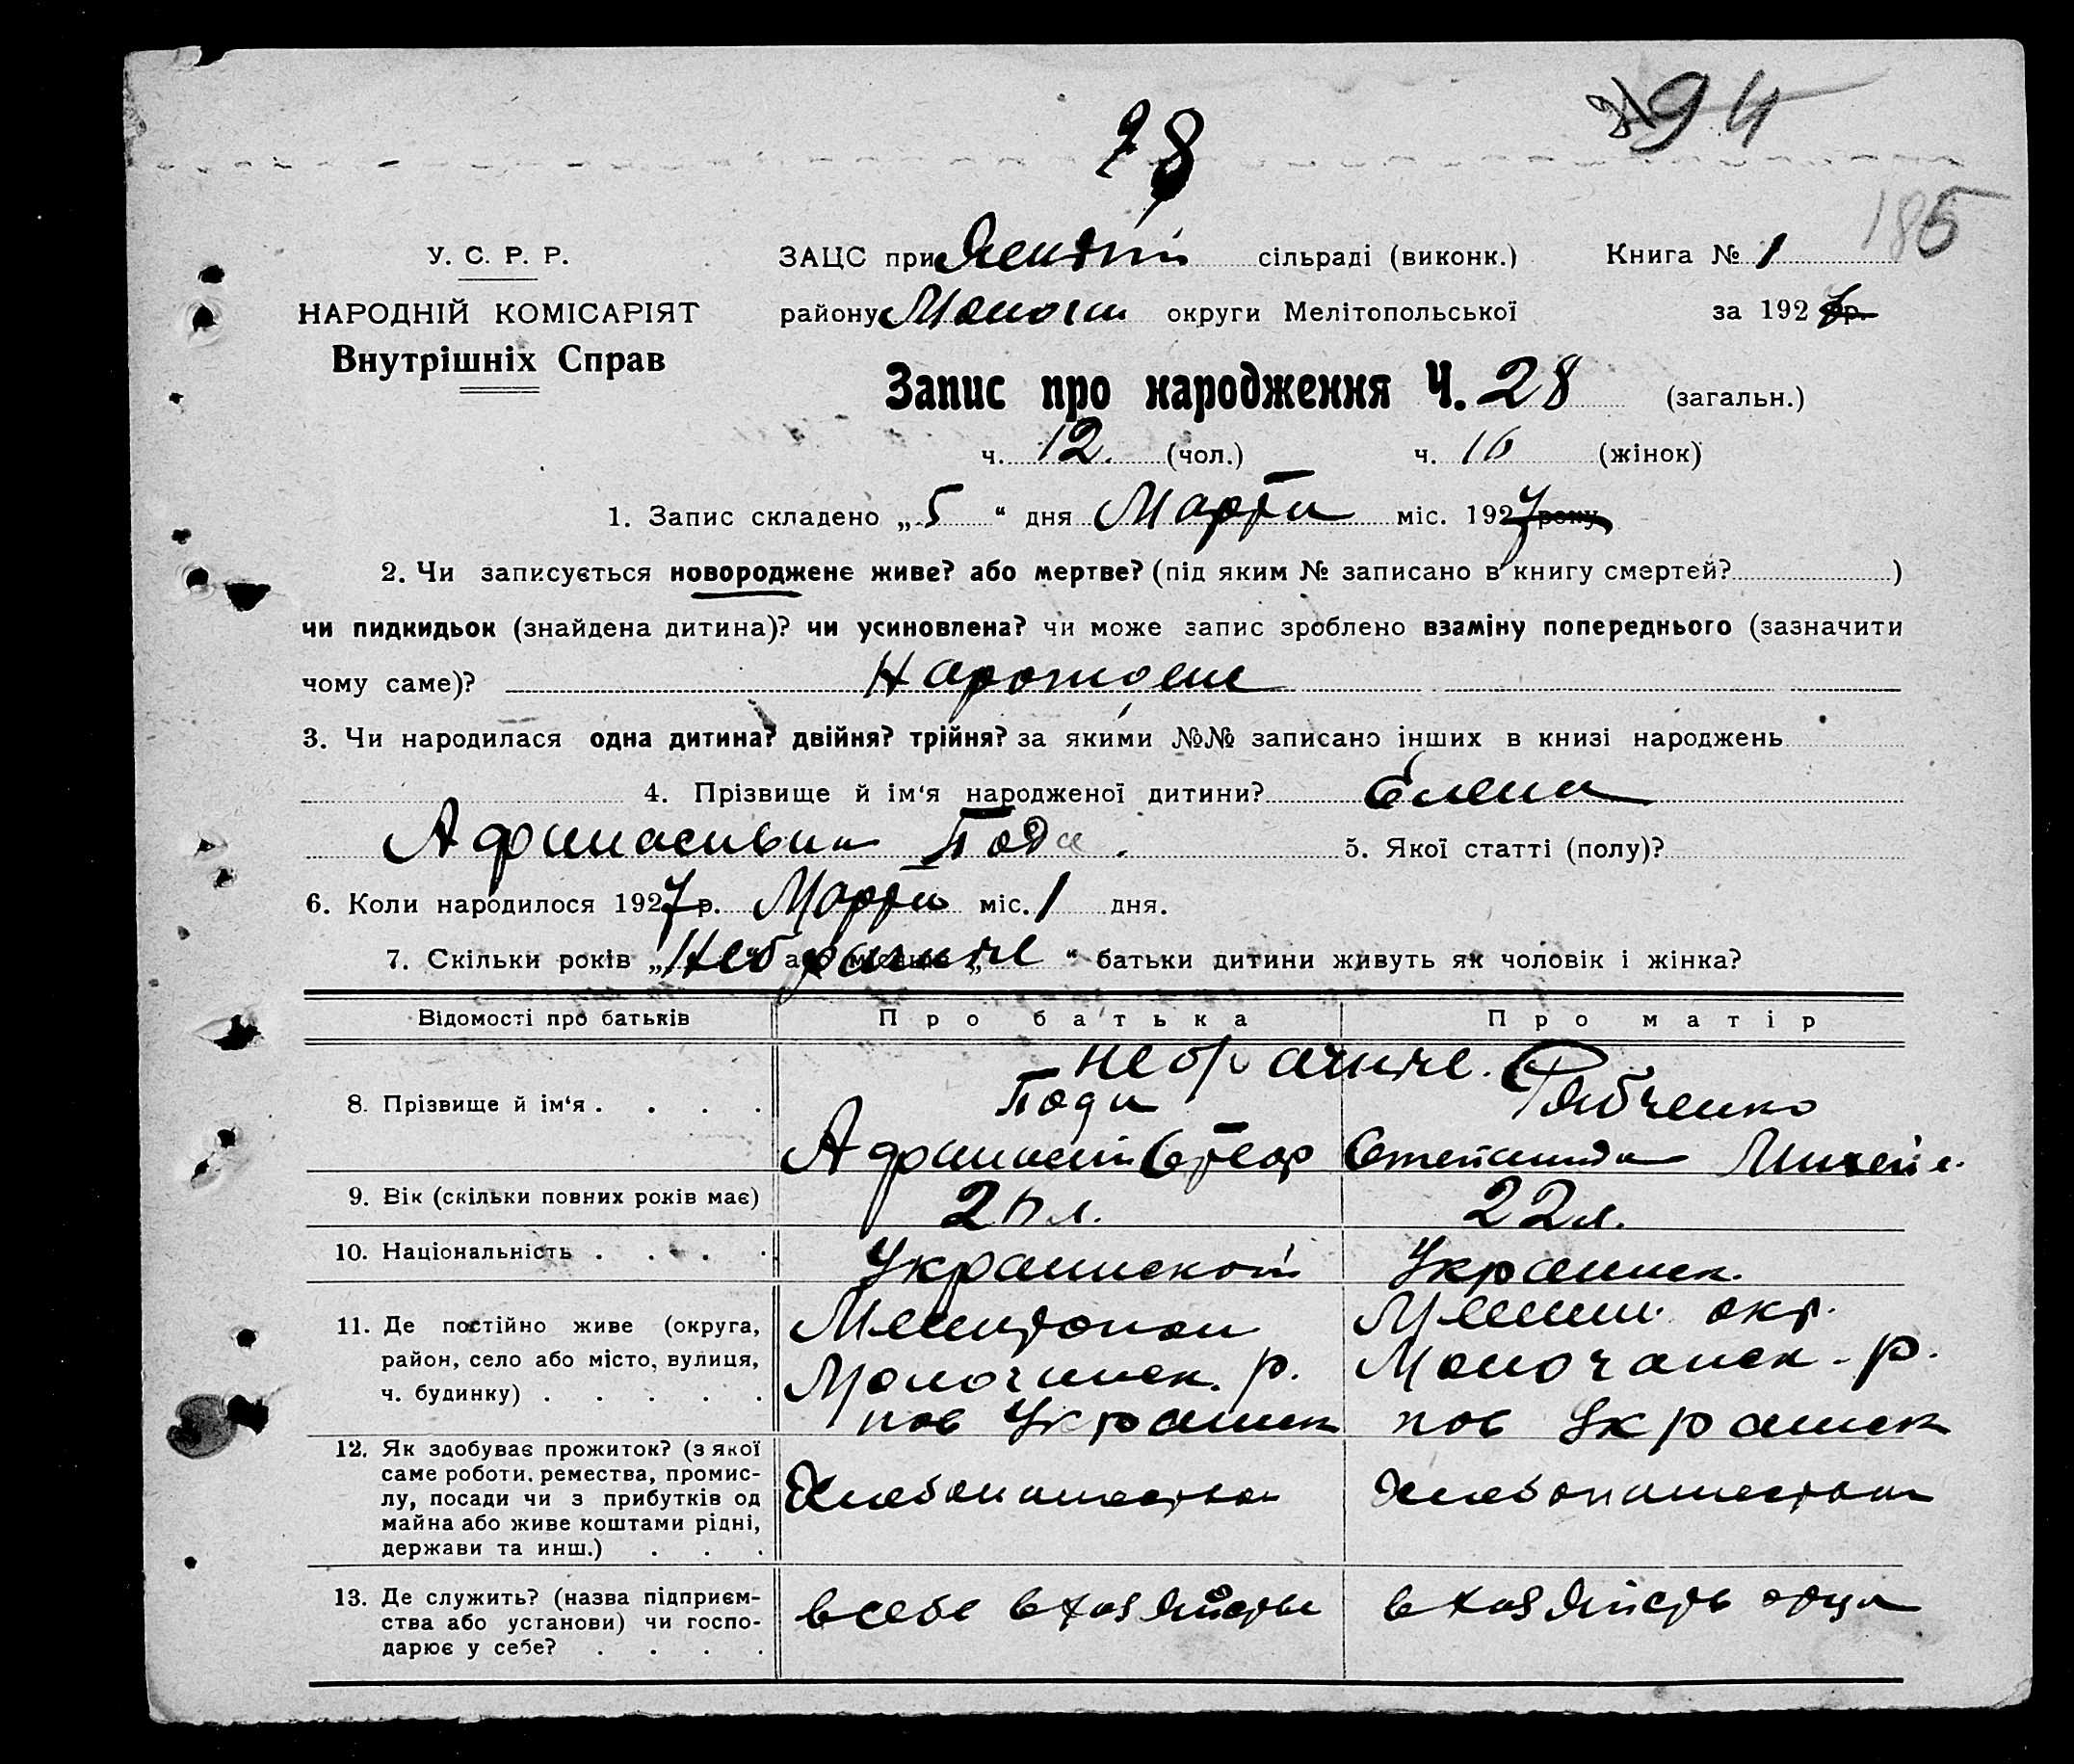 28
94
185
У. С. Р. Р.
НАРОДНІЙ КОМІСАРІЯТ
Внутрішніх Справ
ЗАЦС при сільраді (виконк.) Книга № 1
району Молочн округи Мелітопольської за 1927 р.
Запис про народження Ч. 28 (загальн.)
ч. 12. (чол.) ч. 16 (жінок)
1. Запис складено „ 5 “ дня Марта міс. 1927 року
2. Чи записується новороджене живе? або мертве? (під яким № записано в книгу смертей? )
чи пидкидьок (знайдена дитина)? чи усиновлена? чи може запис зроблено взаміну попереднього (зазначити
чому саме)?
3. Чи народилася одна дитина? двійня? трійня? за якими №№ записано інших в книзі народжень
4. Прізвище й ім‘я народженої дитини? Елена
Афанасивна Пода. 5. Якої статті (полу)?
6. Коли народилося 1927 р. Марта міс. 1 дня.
7. Скільки років „ Небрачные “ батьки дитини живуть як чоловік і жінка?
Відомості про батьків Про батька Про матір
небрачные.
8. Прізвище й ім‘я . . . . Пода Рябченко
Афанасий Степанида
9. Вік (скільки повних років має) 22 л.
10. Національність . . . . Украинской Украинск.
11. Де постійно живе (округа, район, село або місто, вулиця, ч. будинку) . . . . .
Мелитопол Мелит. окр.
Молочанск. р. Молочанск. р.
пов Украинск пов Украинск
12. Як здобуває прожиток? (з якої
саме роботи, ремества, промис-
лу, посади чи з прибутків од
майна або живе коштами рідні,
держави та инш.) . . .
Хлебопашество Хлебопашеством
13. Де служить? (назва підприєм-
ства або установи) чи госпо-
дарює у себе? . . . .
в себе в хозяйстве в хозяйств отца